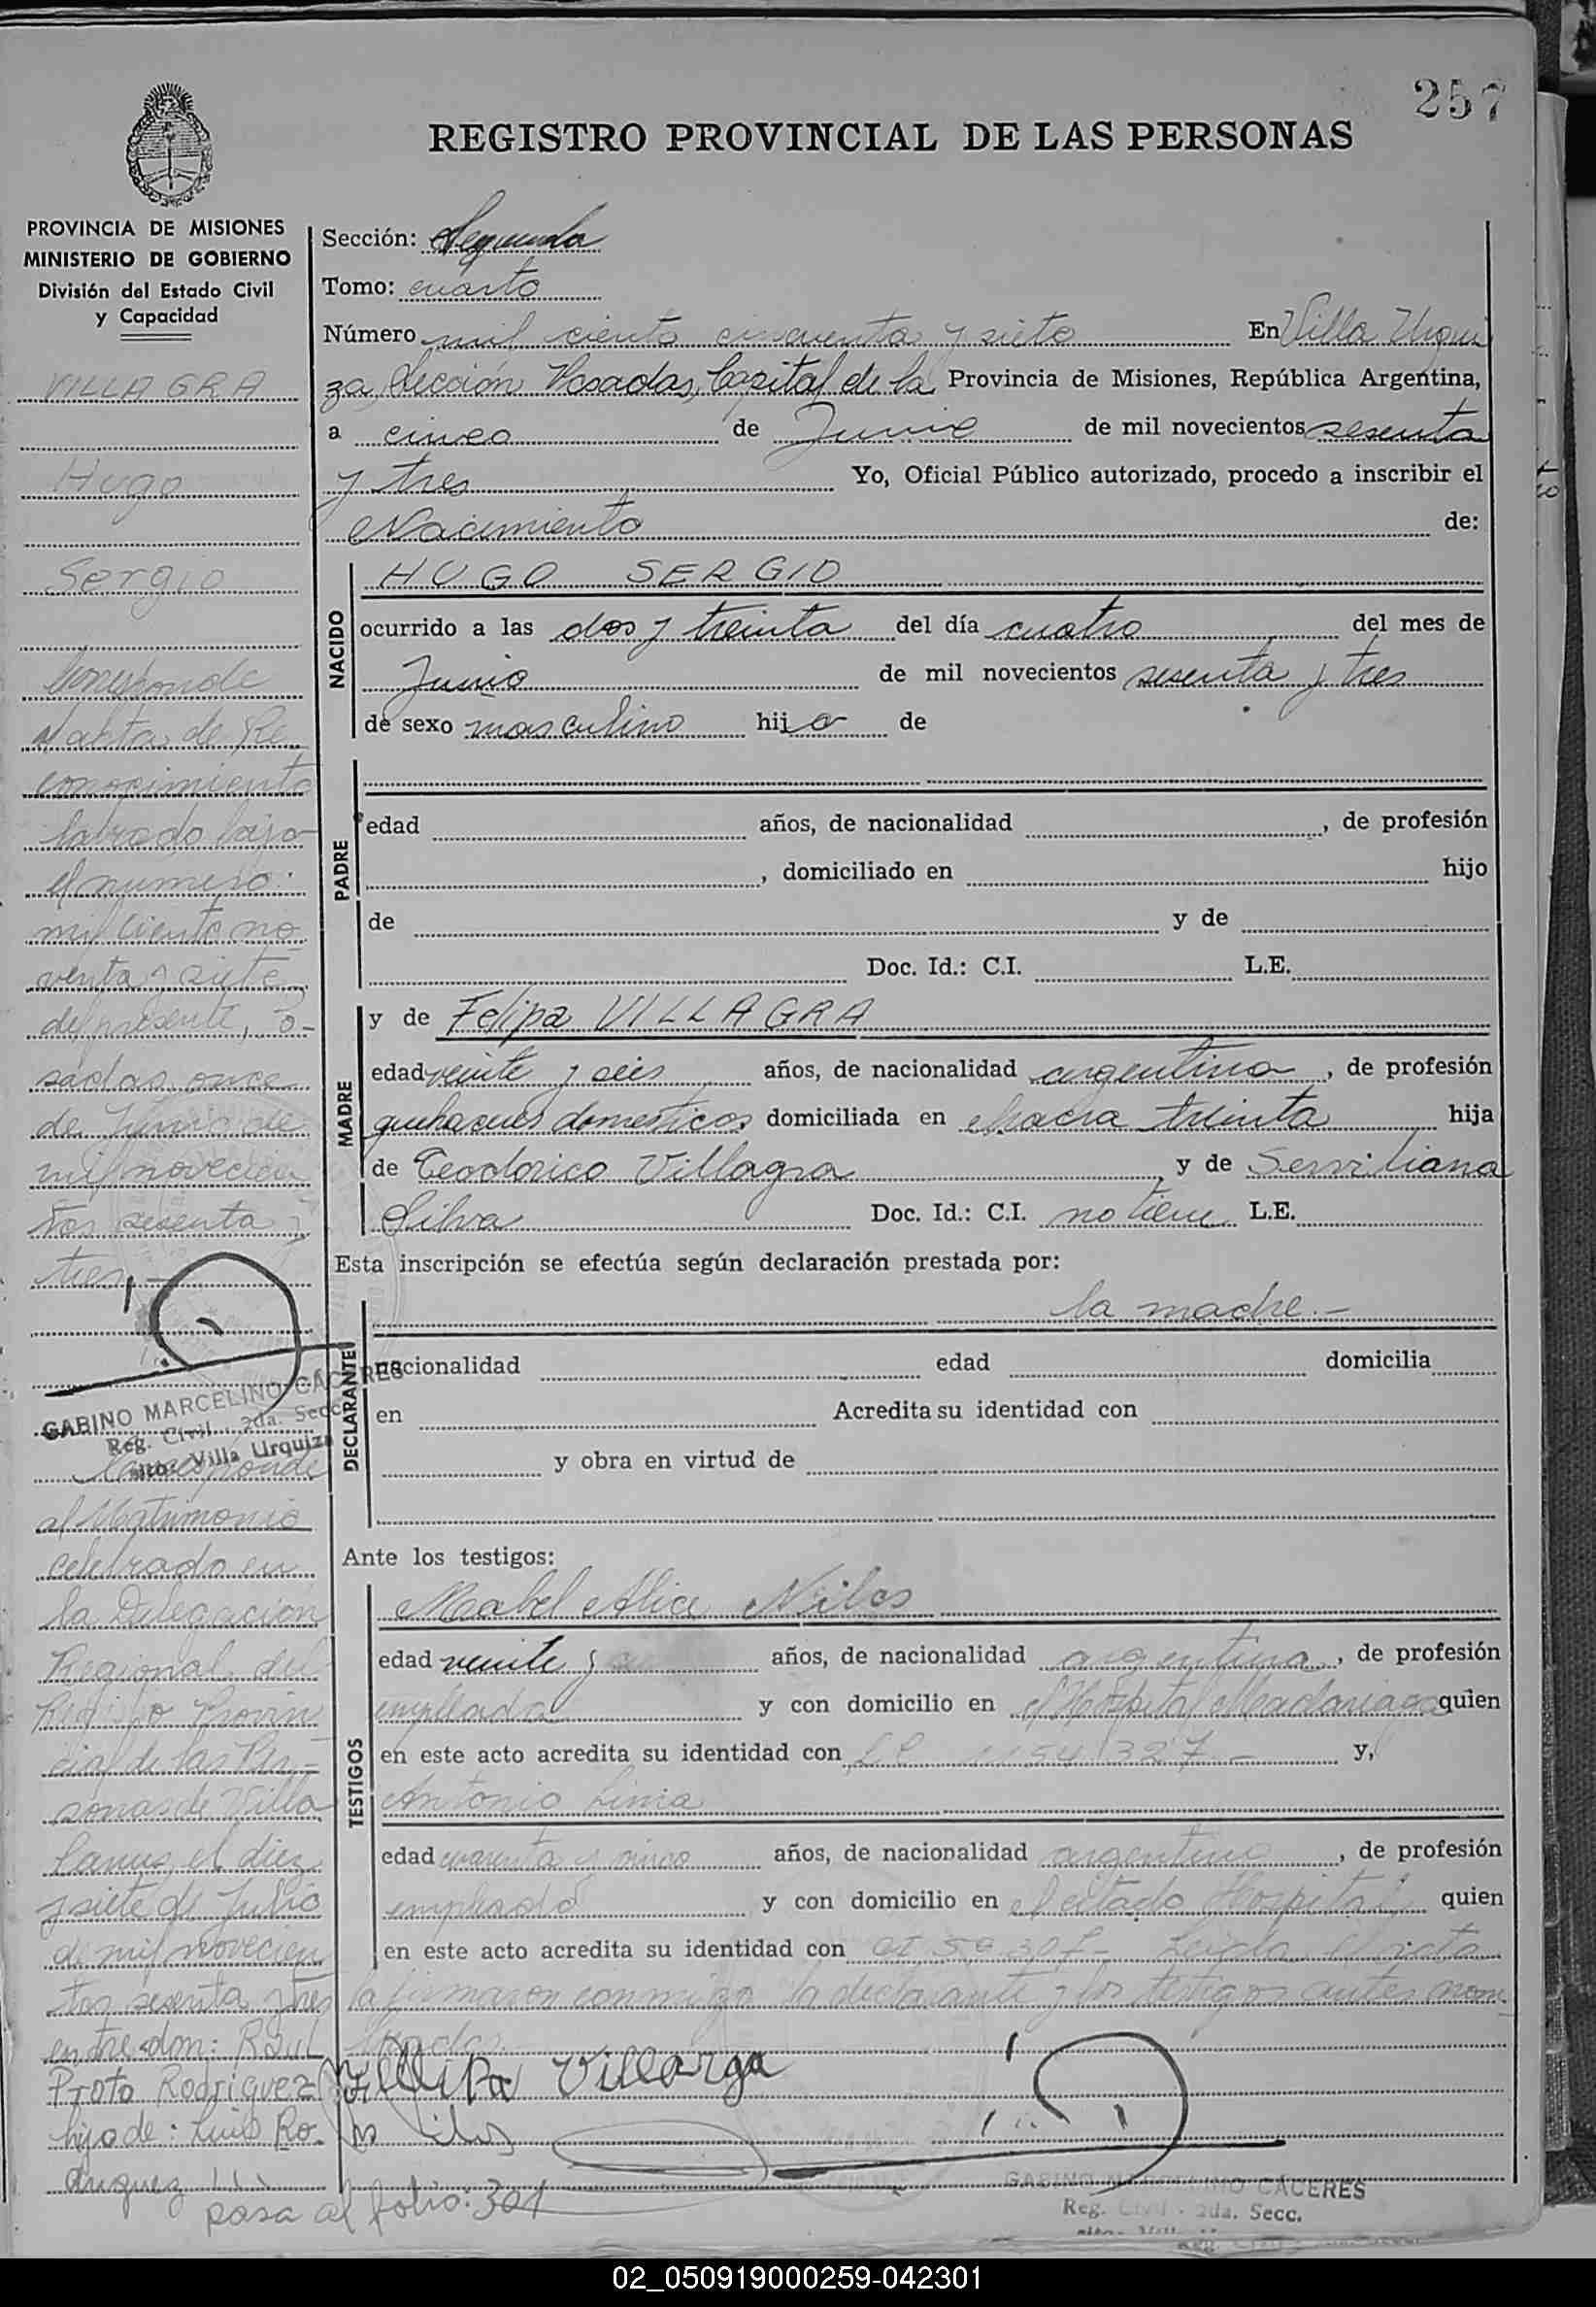 257
REGISTRO PROVINCIAL DE LAS PERSONAS
PROVINCIA DE MISIONES
MINISTERIO DE GOBIERNO
División del Estado Civil
y Capacidad
VILLAGRA
Hugo
Sergio
Corresponde
al akta de Re
conocimiento
labrado bajo
el numero:
mil ciento no
venta y siete
del presente, Po-
sadas, once
de Junio de
mil novecien
tos sesenta y
tres
GABINO MARCELINO CACERES
Reg. Civil - 2da. Secc.
Villa Urquiza
Corresponde
al Matrimonio
celebrado en
la Delegacion
Regional del
Registro Provin
cial de las Per-
sonas de Villa
Lanus, el diez
y siete de Julio
de mil novecien
tos sesenta y tres
entre don: Raul
Proto Rodriguez
hijo de: Luis Ro-
driguez
pasa al folio: 301
Sección: Segunda
Tomo: cuarto
Número mil ciento cincuenta y siete En Villa Urqui
za, Sección Posadas, Capital de la Provincia de Misiones, República Argentina,
a cinco de Junio de mil novecientos sesenta
y tres Yo, Oficial Público autorizado, procedo a inscribir el
Nacimiento de:
NACIDO
HUGO SERGIO
ocurrido a las dos y treinta del día cuatro del mes de
Junio de mil novecientos sesenta y tres
de sexo masculino hijo de
PADRE
edad años, de nacionalidad , de profesión
, domiciliado en hijo
de y de
Doc. Id.: C.I. L.E.
MADRE
y de Felipa VILLAGRA
edad veinte y seis años, de nacionalidad argentina, de profesión
quehaceres domesticos domiciliada en chacra treinta hija
de Teodorico Villagra y de Serviliana
Silva Doc. Id.: C.I. no tiene L.E.
Esta inscripción se efectúa según declaración prestada por:
DECLARANTE
la madre.-
nacionalidad edad domicilia
en Acredita su identidad con
y obra en virtud de
Ante los testigos:
TESTIGOS
Mabel Alice Niles
edad veinte y años, de nacionalidad argentina, de profesión
empleada y con domicilio en el Hospital Madariaga quien
en este acto acredita su identidad con y,
Antonio
edad cuarenta y cinco años, de nacionalidad argentino, de profesión
empleado y con domicilio en el citado Hospital quien
en este acto acredita su identidad con Leida el acta
la firmaron conmigo la declarante y los testigos antes nom
brados.
Fellipa Villarga
GABINO MARCELINO CACERES
Reg. Civil - 2da. Secc.
02_050919000259-042301